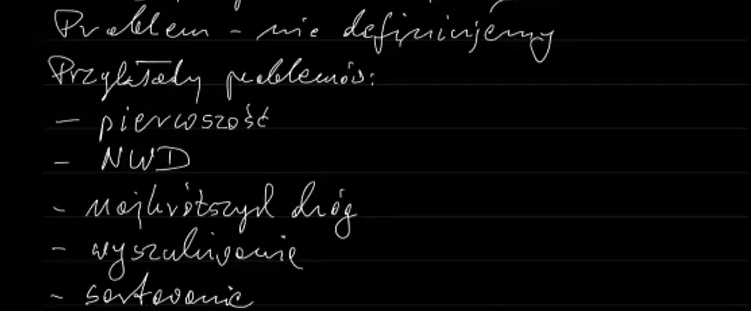 Problem - nie definiujemy
Przykłady problemów:
- pierwszość
- NWD
- najkrótszych dróg
- wyszukiwanie
- sortowanie